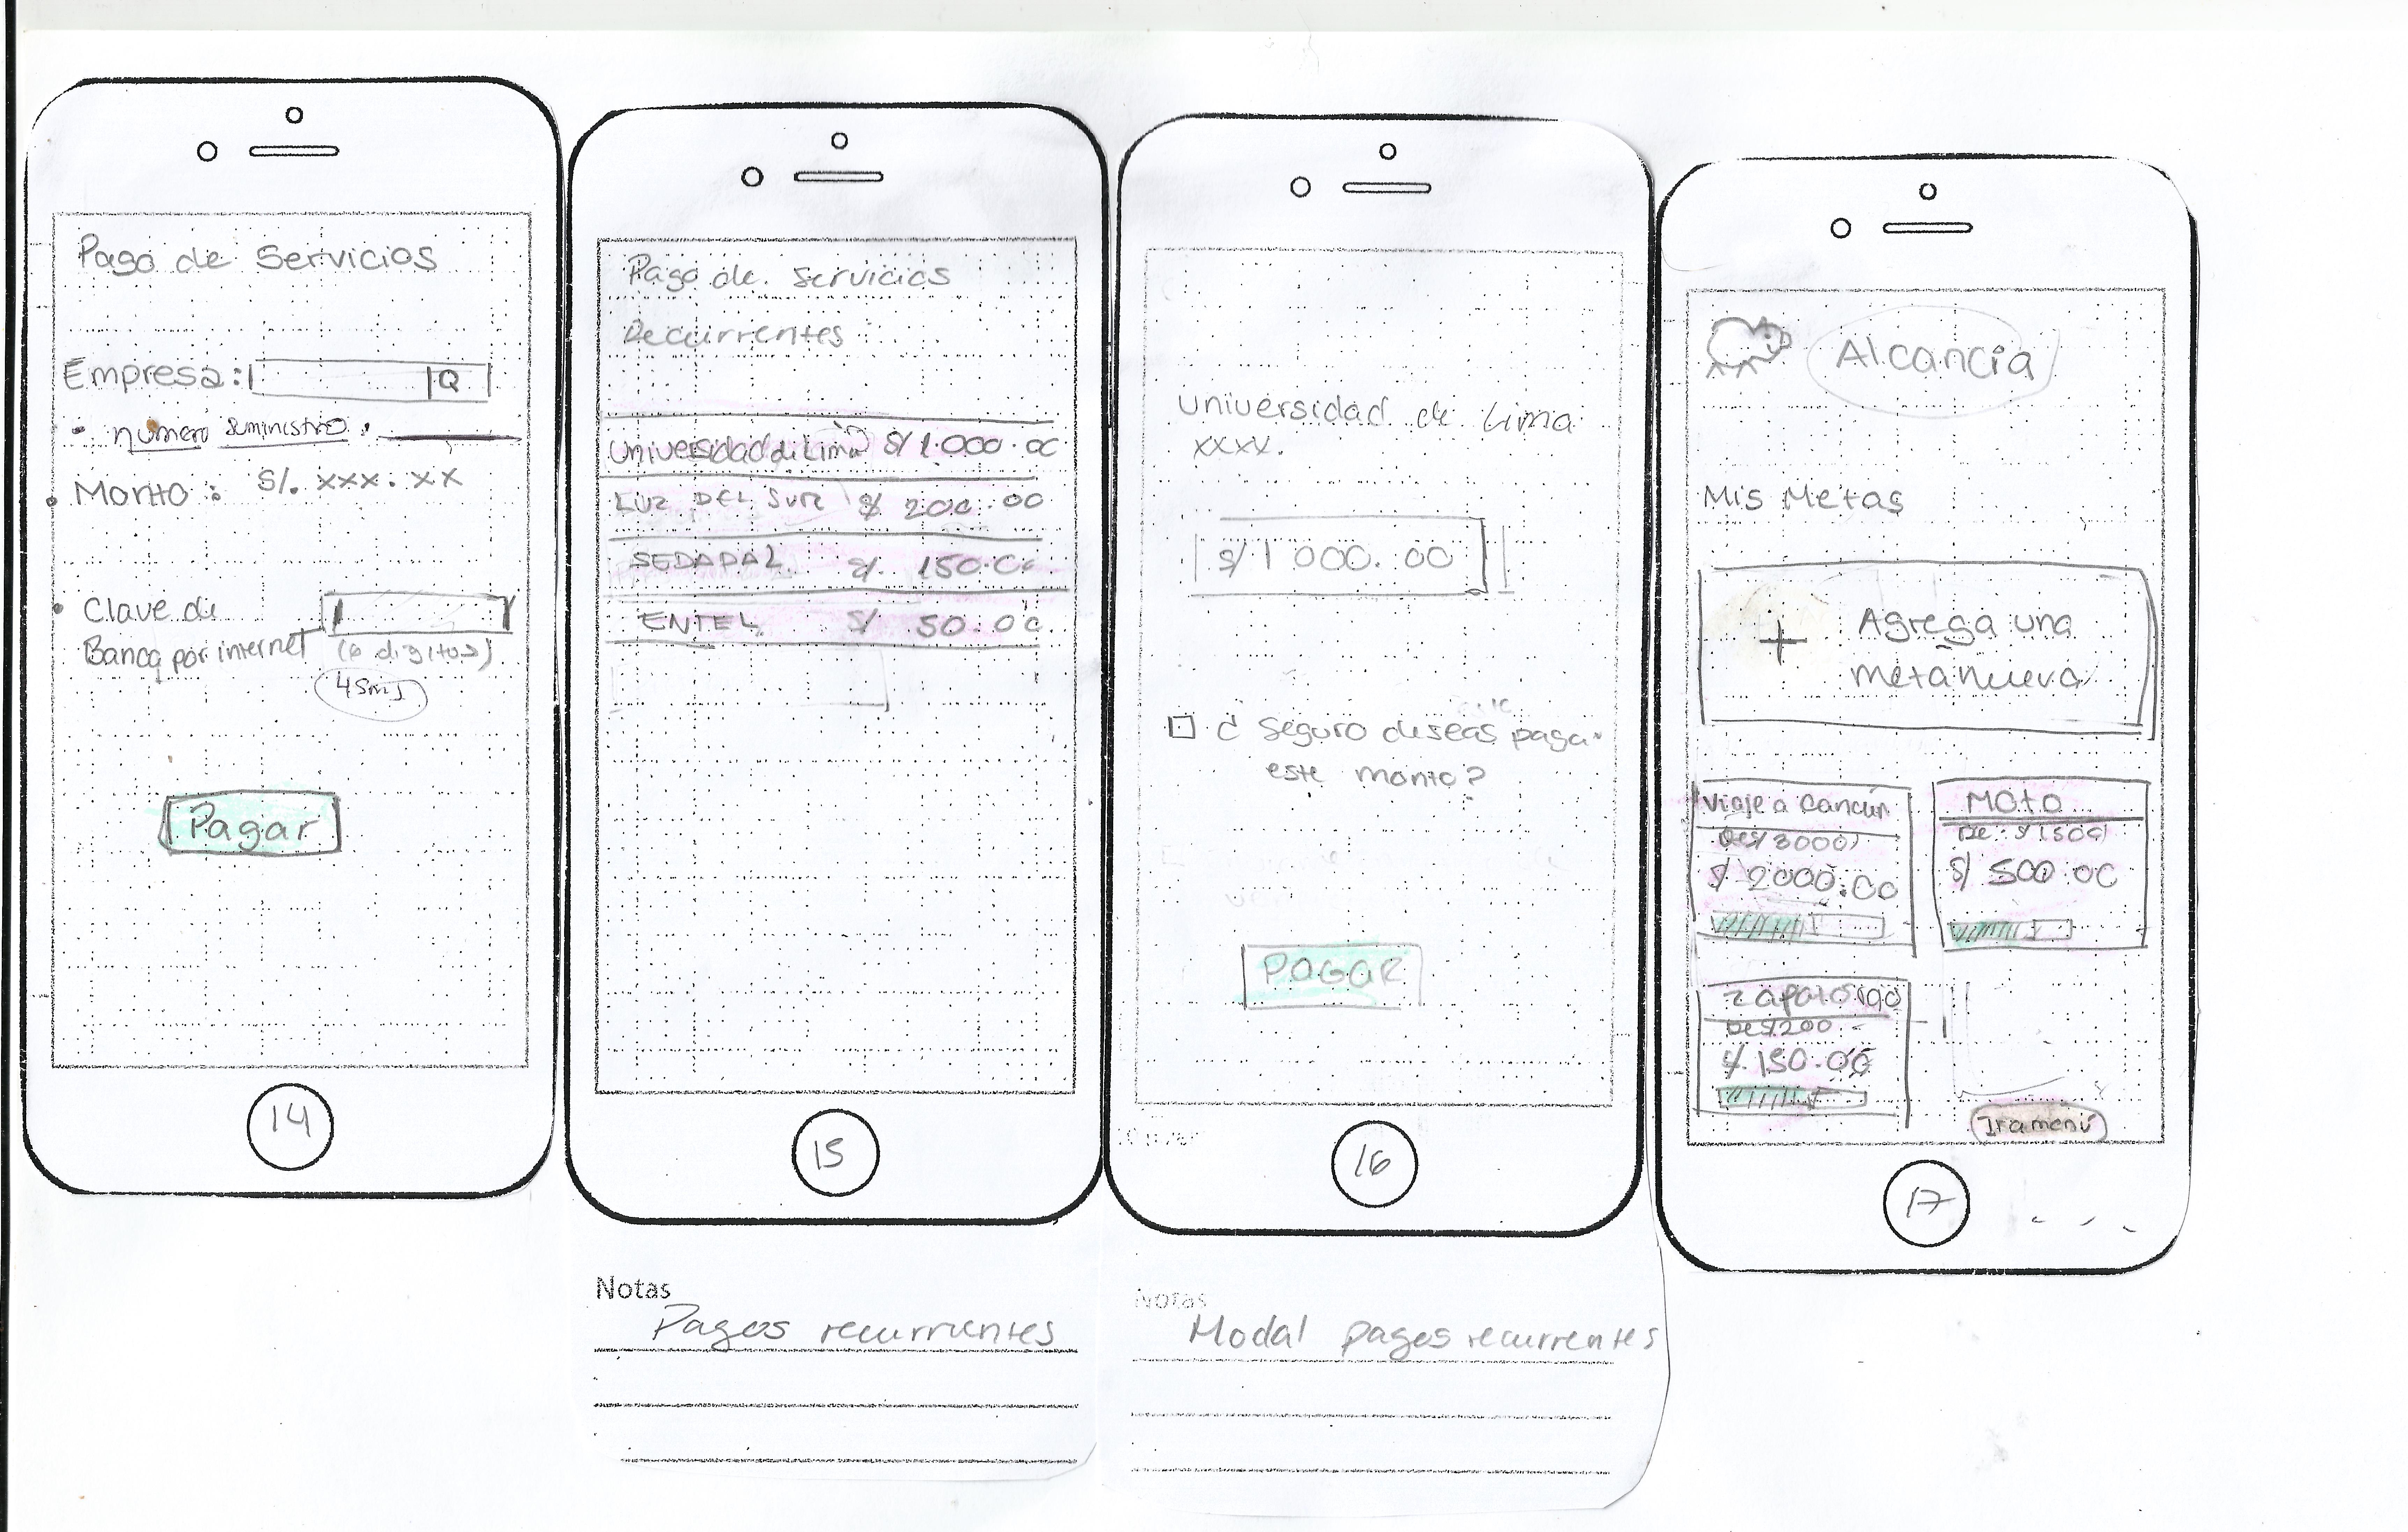 Pago de Servicios
Empresa: Q
• numero suministro:
• Monto: S/. xxx. xx
• Clave de
Banca por internet (6 digitos)
Pagar
14
Pago de servicios
Recurrentes
Universidad de Lima S/ 1000.00
LUZ DEL SUR S/ 200.00
SEDAPAL S/. 150.00
ENTEL S/ 50.00
15
Notas
Pagos recurrentes
Universidad de Lima
xxxx.
S/ 1000.00
¿Seguro deseas pagar
este monto?
PAGAR
16
Notas
Modal pagos recurrentes
Alcancia
Mis Metas
+ Agrega una
meta nueva
Viaje a Cancún
De S/ 3000
S/ 2000.00
Moto
De: S/ 1500
S/ 500.00
De S/ 200.-
S/. 150.00
Ir a menú
17